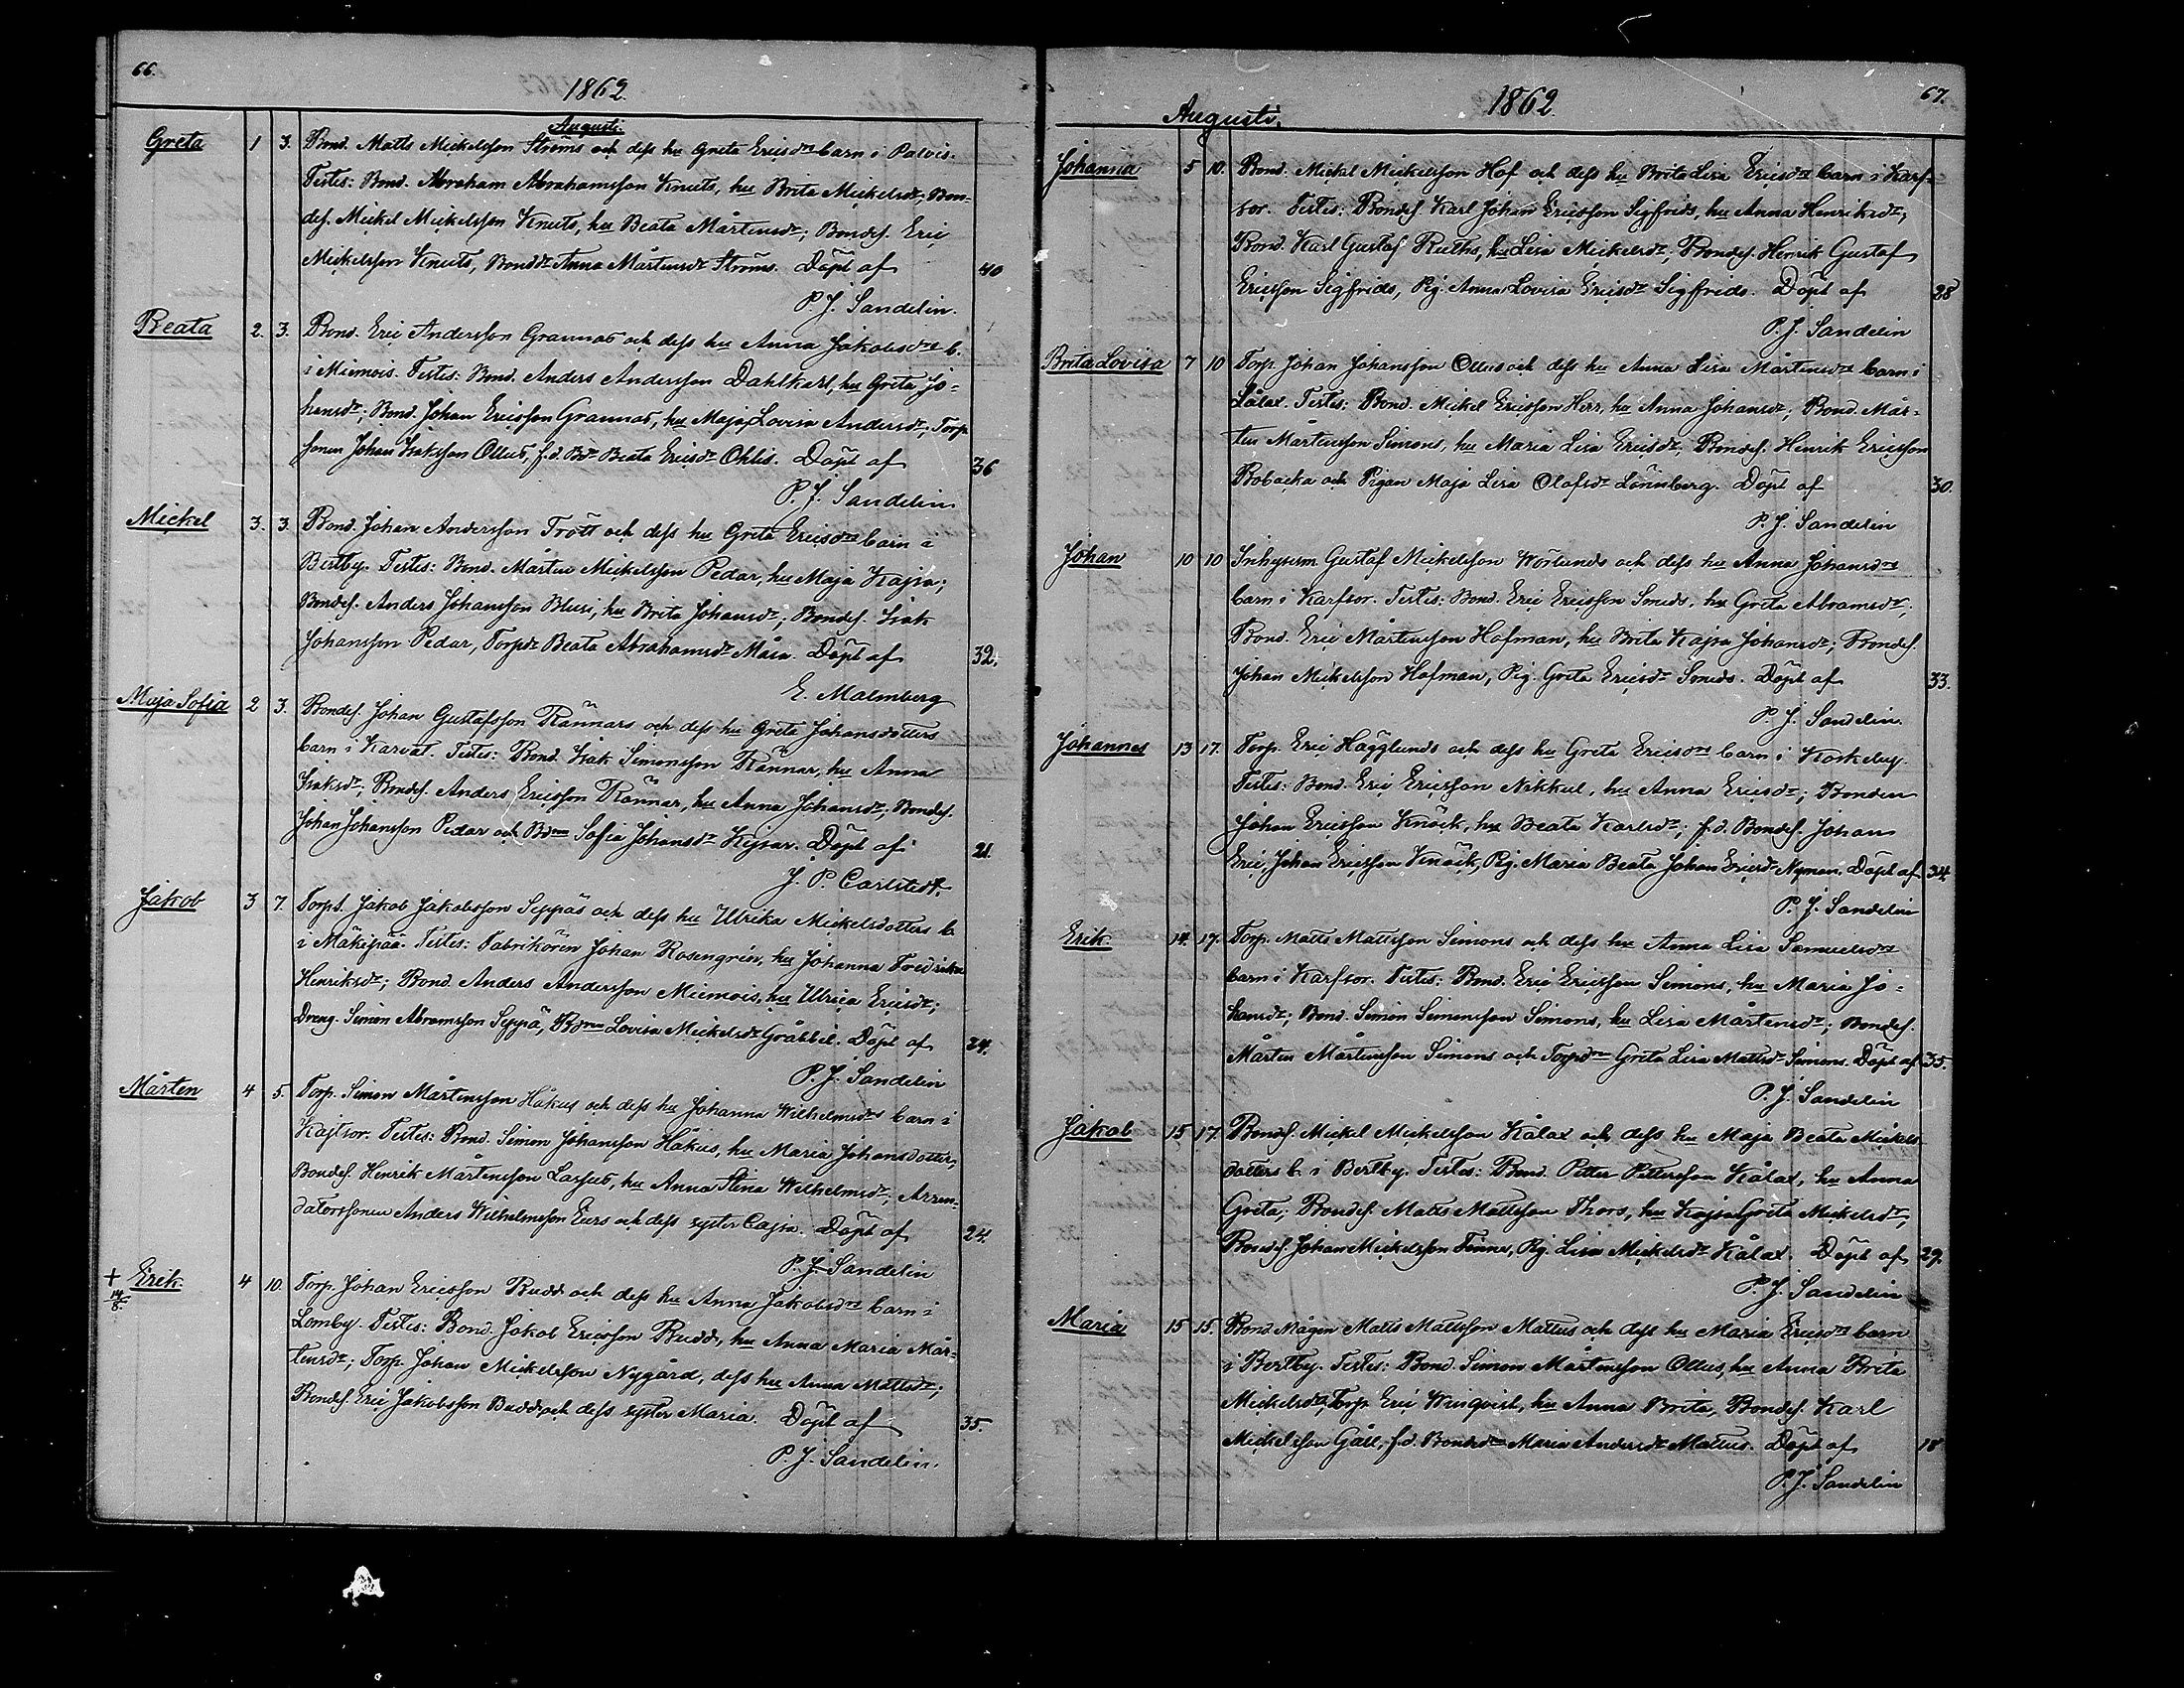 66.
1862.
Augusti.
Greta 1 3. Bond. Matts Mickelsson Ströms och dess hu Greta Ericsdrs barn i Palvis.
Testes: Bond. Abraham Abrahamsson Knuts, hu Brita Mickelsdr; Bon-
des. Mickel Mickelsson Knuts, hu Beata Mårtensdr; Bondes. Eric
Mickelsson Knuts, Bonddr Anna Mårtensdr Ströms. Döpt af 40
P. J. Sandelin.
Beata 2. 3. Bond. Eric Andersson Grannas och dess hu Anna Jakobsdrs b.
i Miemois. Testes: Bond. Anders Andersson Dahlkarl, hu Greta Jo-
hansdr; Bond. Johan Ericsson Grannas, hu Maja Lovisa Andersdr; Torp.
sonen Johan Isaksson Ollus, f.d. Bdr Beata Ericsdr Ohlis. Döpt af 36
P. J. Sandelin
Mickel 3. 3. Bond. Johan Andersson Trött och dess hu Greta Ericsdrs barn i
Bertby. Testes: Bond. Mårten Mickelsson Pedar, hu Maja Kajsa;
Bondes. Anders Johansson Blusi, hu Brita Johansdr; Bondes. Isak
Johansson Pedar, Torpdr Beata Abrahamsdr Måra. Döpt af 32.
E. Malmberg
Maja Sofia 2 3. Bondes. Johan Gustafsson Rännars och dess hu Greta Johansdotters
barn i Karvat. Testes: Bond. Isak Simonsson Rännar, hu Anna
Isaksdr; Bondes. Anders Ericsson Rännar, hu Anna Johansdr; Bondes.
Johan Johansson Pedar och Bdrn Sofia Johansdr Kijsar. Döpt af 21.
J. P. Carlstedt.
Jakob 3 7. Torps. Jakob Jakobsson Seppäs och dess hu Ulrika Mickelsdotters b.
i Mäkipää. Testes: Fabrikören Johan Rosengrén, hu Johanna Fredrika
Henriksdr; Bond. Anders Andersson Miemois, hu Ulrica Ericsdr;
Dreng. Simon Abramsson Seppä, Bdrn Lovisa Mickelsdr Gräbbil. Döpt af 24.
P. J. Sandelin
Mårten 4 5. Torp. Simon Mårtensson Håkus och dess hu Johanna Wilhelmsdrs barn i
Kajtsor. Testes: Bond. Simon Johansson Håkus, hu Maria Johansdotter,
Bondes. Henrik Mårtensson Lassus, hu Anna Stina Wilhelmsdr; Arren-
datorssonen Anders Wilhelmsson Eurs och dess syster Cajsa. Döpt af 24.
P. J. Sandelin
+ 14/8. Erik 4 10. Torp. Johan Ericsson Budd och dess hu Anna Jakobsdrs barn i
Lomby. Testes: Bond. Jakob Ericsson Budd, hu Anna Maria Mår-
tensdr; Torp. Johan Mickelsson Nygård, dess hu Anna Mattsdr;
Bondes. Eric Jakobsson Budd och dess syster Maria. Döpt af 35.
P. J. Sandelin.
67.
1862.
Augusti.
Johanna 5 10. Bond. Mickel Mickelsson Hof och dess hu Brita Lisa Ericsdrs barn i Karf-
sor. Testes: Bondes. Karl Johan Ericsson Sigfrids, hu Anna Henriksdr,
Bond. Karl Gustaf Ruths, hu Lisa Mickelsdr; Bondes. Henrik Gustaf
Ericsson Sigfrids, Pig. Anna Lovisa Ericsdr Sigfrids. Döpt af 28
P. J. Sandelin
Brita Lovisa 7 10 Torp. Johan Johansson Ollus och dess hu Anna Lisa Mårtensdrs barn i
Lålax. Testes: Bond. Mickel Ericsson Herr, hu Anna Johansdr; Bond. Mår-
ten Mårtensson Simons, hu Maria Lisa Ericsdr; Bondes. Henrik Ericsson
Bobacka och Pigan Maja Lisa Olofsdr Lönnberg. Döpt af 30.
P. J. Sandelin
Johan 10 10 Inhysesm. Gustaf Mickelsson Wörlunds och dess hu Anna Johansdrs
barn i Karfsor. Testes: Bond. Eric Ericsson Smeds, hu Greta Abramsdr;
Bond. Eric Mårtensson Hofman, hu Brita Kajsa Johansdr; Bondes.
Johan Mickelsson Hofman, Pig. Greta Ericsdr Smeds. Döpt af 33.
P. J. Sandelin.
Johannes 13 17. Torp. Eric Hägglunds och dess hu Greta Ericsdrs barn i Koskeby.
Testes: Bond. Eric Ericsson Nikkul, hu Anna Ericsdr; Bonden
Johan Ericsson Knäck, hu Beata Karlsdr; f.d. Bondes. Johan
Eric Johan Ericsson Knäck, Pig. Maria Beata Johan Ericsdr Nyman. Döpt af 34.
P. J. Sandelin
Erik 14. 17. Torp. Matts Mattsson Simons och dess hu Anna Lisa Samuelsdrs
barn i Karfsor. Testes: Bond. Eric Ericsson Simons, hu Maria Jo-
hansdr; Bond. Simon Simonsson Simons, hu Lisa Mårtensdr; Bondes.
Mårten Mårtensson Simons och Torpdrn Greta Lisa Mattsdr Simons. Döpt af 35.
P. J. Sandelin
Jakob 15 17. Bondes. Mickel Mickelsson Kålax och dess hu Maja Beata Mickels-
dotters b. i Bertby. Testes: Bond. Petter Pettersson Kålax, hu Anna
Greta; Bondes. Matts Mattsson Thors, hu Kajsa Greta Mickelsdr,
Bondes. Johan Mickelsson Finne, Pig. Lisa Mickelsdr Kålax. Döpt af 29.
P. J. Sandelin
Maria 15 15. Bond. Mågen Matts Mattsson Mattus och dess hu Maria Ericsdrs barn
i Bertby. Testes: Bond. Simon Mårtensson Ollus, hu Anna Brita
Mickelsdr; Torp. Eric Winqvist, hu Anna Brita, Bondes. Karl
Mickelsson Gåll, f.d. Bondedrn Maria Andersdr Mattus. Döpt af 18
P. J. Sandelin